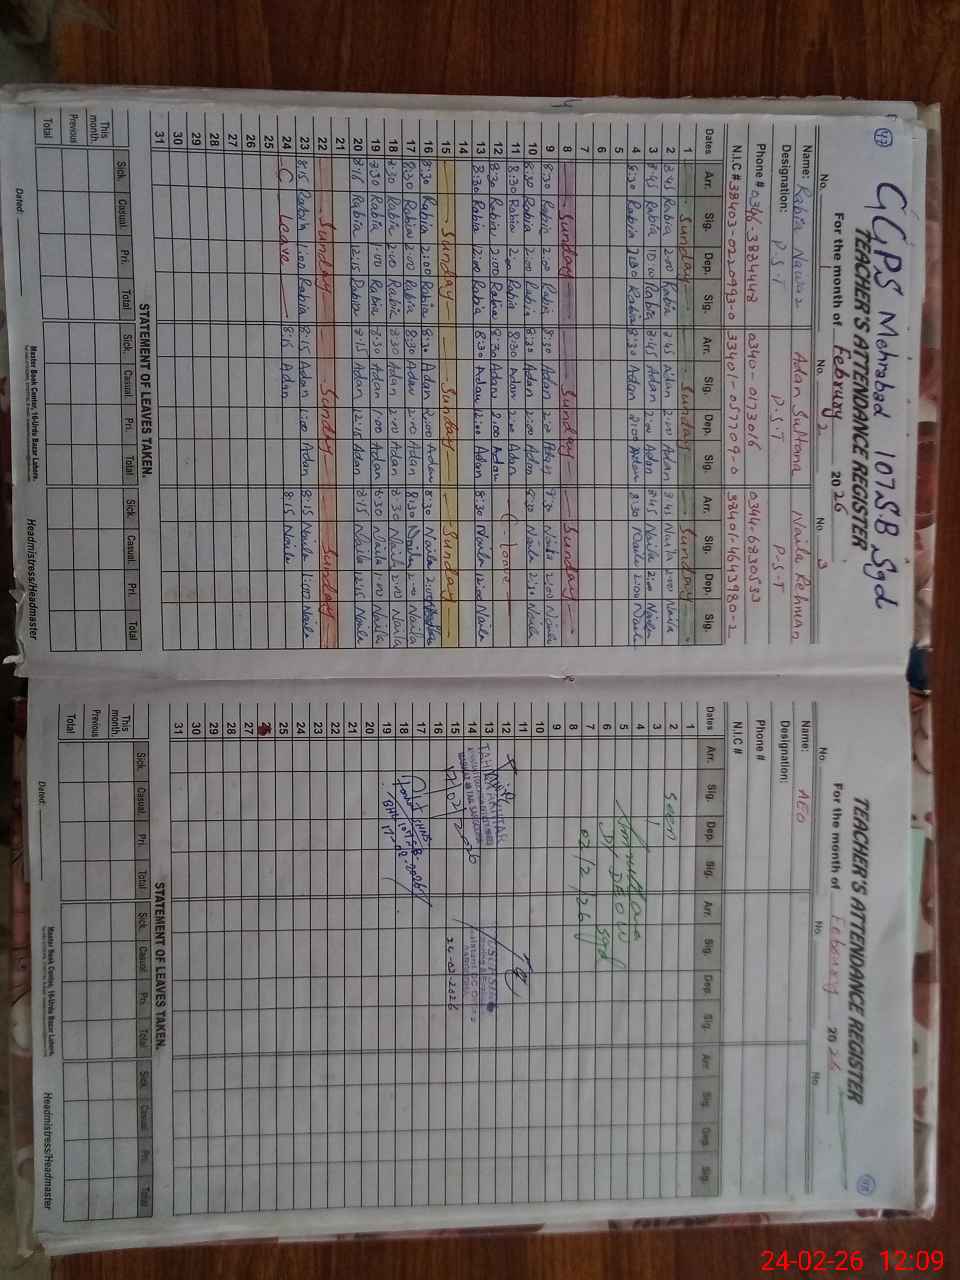 47
GGPS Mehrabad 107SB Sgd
TEACHER'S ATTENDANCE REGISTER
For the month of February 2026
No. 1 No. 2 No. 3
Name: Rabia Nawaz Adan Sultana Naila Rehman
Designation: P.S.T P.S.T P.S.T
Phone # 0340-0173016 0344-6830533
N.I.C # 38403-0220993-0
Dates Arr. Sig. Dep. Sig. Arr. Sig. Dep. Sig. Arr. Sig. Dep. Sig.
1 Sunday Sunday Sunday
2 8:45 Rabia 2:00 Rabia 8:45 Adan 2:00 Adan 8:45 Naila 2:00 Naila
3 8:45 Rabia Rabia 8:45 Adan 2:00 Adan 8:45 Naila 2:00 Naila
4 8:30 Rabia Rabia 8:30 Adan 2:00 Adan 8:30 Naila 2:00 Naila
5
6
7
8 Sunday Sunday Sunday
9 8:30 Rabia 2:00 Rabia 8:30 Adan 2:00 Adan 8:30 Naila 2:00 Naila
10 8:30 Rabia 2:00 Rabia 8:30 Adan 2:00 Adan 8:30 Naila Naila
11 8:30 Rabia 2:00 Rabia 8:30 Adan 2:00 Adan
12 8:30 Rabia 2:00 Rabia 8:30 Adan Adan C. Leave
13 8:30 Rabia 12:00 Rabia 8:30 Adan 12:00 Adan 8:30 Naila 12:00 Naila
14
15 Sunday Sunday Sunday
16 8:30 Rabia 2:00 Rabia 8:30 Adan 2:00 Adan 8:30 Naila 2:00
17 8:30 Rabia 2:00 Rabia 8:30 Adan 2:00 Adan 8:30 Naila 2:00 Naila
18 8:30 Rabia 2:00 Rabia 8:30 Adan 2:00 Adan 8:30 Naila 2:00 Naila
19 8:30 Rabia 1:00 Rabia 8:30 Adan 1:00 Adan 8:30 Naila 1:00 Naila
20 8:15 Rabia 12:15 Rabia 8:15 Adan 12:15 Adan 8:15 Naila 12:15 Naila
21
22 Sunday Sunday Sunday
23 8:15 Rabia 1:00 Rabia 8:15 Adan 1:00 Adan 8:15 Naila 1:00 Naila
24 C Leave 8:15 Adan 8:15 Naila
25
26
27
28
29
30
31
STATEMENT OF LEAVES TAKEN.
Sick. Casual. Pri. Total Sick. Casual. Pri. Total Sick. Casual. Pri. Total
This month.
Previous
Total
Master Book Center, 16-Urdu Bazar Lahore.
Dated: Headmistress/Headmaster
48
TEACHER'S ATTENDANCE REGISTER
For the month of February 2026
No. No. No.
Name: AEO
Designation:
Phone #
N.I.C #
Dates Arr. Sig. Dep. Sig. Arr. Sig. Dep. Sig. Arr. Sig. Dep. Sig.
1
2 Seen
3
4
5
6 Dy DEO W Sgd
7 02/2/26
8
9
10
11
12
13
14
15 17/02/2026 24-02-2026
16
17
18
19
20
21
22
23
24
25
27
28
29
30
31
STATEMENT OF LEAVES TAKEN.
Sick. Casual. Pri. Total Sick. Casual. Pri. Total Sick. Casual. Pri. Total
This month.
Previous
Total
Master Book Center, 16-Urdu Bazar Lahore.
Dated: Headmistress/Headmaster
24-02-26 12:09